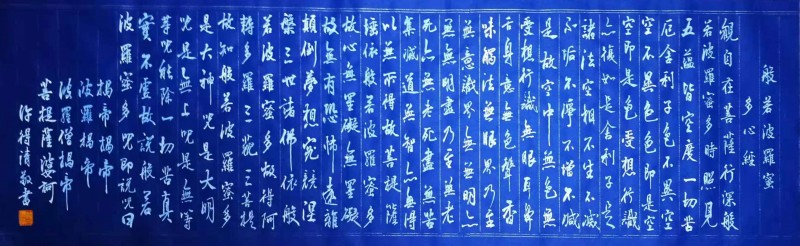 般若波羅蜜
多心經
觀自在菩薩行深般
若波羅蜜多時照見
五蘊皆空度一切苦
厄舍利子色不異空
空不異色色即是空
空即是色受想行識
亦復如是舍利子是
諸法空相不生不滅
不垢不淨不增不減
是故空中無色無
受想行識無眼耳鼻
舌身意無色聲香
味觸法無眼界乃至
無意識界無無明亦
無無明盡乃至無老
死亦無老死盡無苦
集滅道無智亦無得
以無所得故菩提薩
埵依般若波羅蜜多
故心無罣礙無罣礙
故無有恐怖遠離
顛倒夢想究竟涅
槃三世諸佛依般
若波羅蜜多故得阿
耨多羅三藐三菩提
故知般若波羅蜜多
是大神咒是大明
咒是無上咒是無等
等咒能除一切苦真
實不虛故說般若
波羅蜜多咒即說咒曰
揭帝揭帝
波羅揭帝
波羅僧揭帝
菩提薩婆訶
許得清敬書